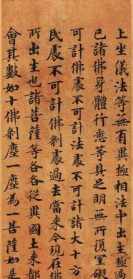 上坐儀法等無有異極相法中出生極
已諸佛身體行悉等具之明無所罣礙
不可計佛剎不可計諸大十方
民處不可計佛剎處過去當來今現在佛
所出生也諸菩薩等各各從異國土來都
會其數如十佛剎塵一塵為一菩薩如是